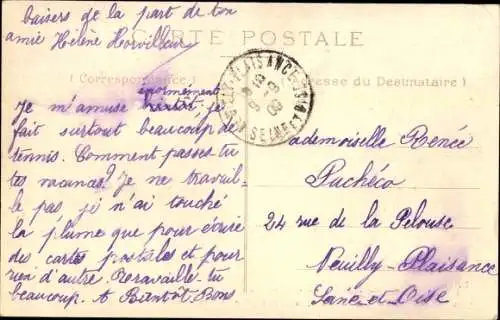 baisers de la part de ton
amie Hélène Horvilleur
CARTE POSTALE
(Correspondance)
(Adresse du Destinataire)
énormement
Je m'amuse je
fait surtout beaucoup de
tennis. Comment passes tu
tes vacances? Je ne travail-
le pas, je n'ai touché
la plume que pour écrire
des cartes postales et pour
rien d'autre. travaille tu
beaucoup. A Bientôt. Bons
PLAISANCE
SEINE ET
Mademoiselle Renée
Pachéco
24 rue de la Pelouse
Neuilly-Plaisance
Seine-et-Oise